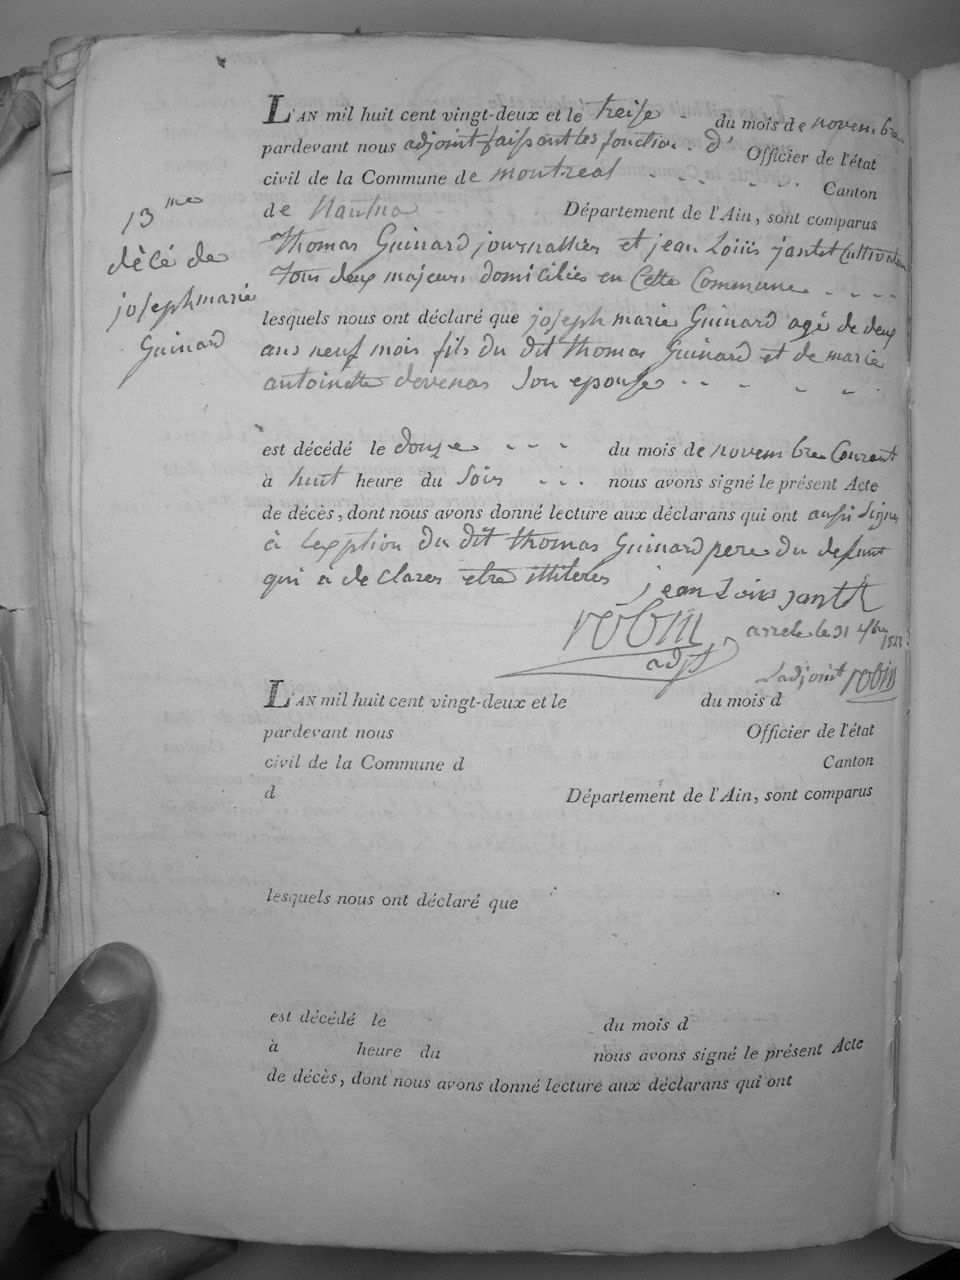 L'AN mil huit cent vingt-deux et le treise du mois de novembre
pardevant nous adjoint faissant les fonction d' Officier de l'état
civil de la Commune de montreal Canton
de Nantua Département de l'Ain, sont comparus
thomas Guinard journallier et jean Loüis jantet Cultivateur
tous deux majeurs domiciliés en Cette Commune
lesquels nous ont déclaré que joseph marie Guinard agé de deux
ans neuf mois fils du dit thomas Guinard et de marie
antoinette devenas son epouse
est décédé le douze du mois de novembre Courant
à huit heure du soir nous avons signé le présent Acte
de décès, dont nous avons donné lecture aux déclarans qui ont aussi signé
à lexption du dit thomas Guinard pere du defunt
qui a de clarer etre illiteres
13me
décé de
joseph marie
Guinard
jean Loüis jantet
robin
adjt
arreté le 31 Xbre 1822
Ladjoint robin
L'AN mil huit cent vingt-deux et le du mois d
pardevant nous Officier de l'état
civil de la Commune d Canton
d Département de l'Ain, sont comparus
lesquels nous ont déclaré que
est décédé le du mois d
à heure du nous avons signé le présent Acte
de décès, dont nous avons donné lecture aux déclarans qui ont